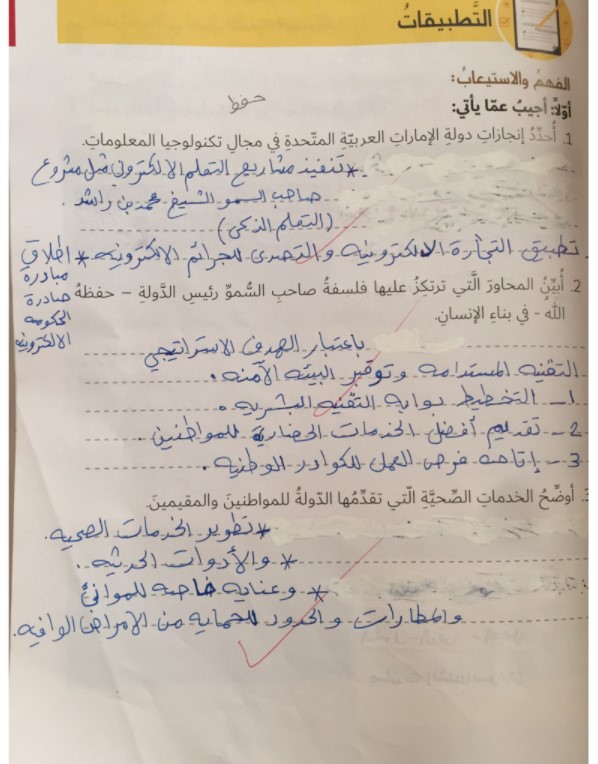 التَّطبيقاتُ
الفهمُ والاستيعابُ:
حفظ
أوّلاً: أجيبُ عمّا يأتي:
1. أُحدّدُ إنجازاتِ دولةِ الإماراتِ العربيّةِ المتّحدةِ في مجالِ تكنولوجيا المعلوماتِ.
* تنفيذ مشاريع التعلم الالكتروني مثل مشروع
صاحب السمو الشيخ محمد بن راشد .
(التعلم الذكي)
تطبيق التجارة الالكترونية والتصدى للجرائم الالكترونيه * اطلاق
مبادرة
صادرة
الحكومه
الالكترونيه
2. أُبيّنُ المحاورَ الَّتي ترتكِزُ عليها فلسفةُ صاحبِ السُّموِّ رئيسِ الدَّولةِ – حفظهُ
اللهُ - في بناءِ الإنسانِ.
باعتبار الهدف الاستراتيجي
التقنيه المستدامه وتوفير البيئه الآمنه .
1 – التخطيط بوابه التقنيه البشريه .
2 – تقديم أفضل الخدمات الحضارية للمواطنين .
3 – إتاحه فرص العمل للكوادر الوطنيه .
3. أوضِّحُ الخدماتِ الصِّحيَّةِ الّتي تقدِّمُها الدّولةُ للمواطنينَ والمقيمينَ.
* تطوير الخدمات الصحيه .
* والأدوات الحديثه .
* وعنايه خاصه للموانئ
والمطارات والحدود للحمايه من الامراض الوافيه .